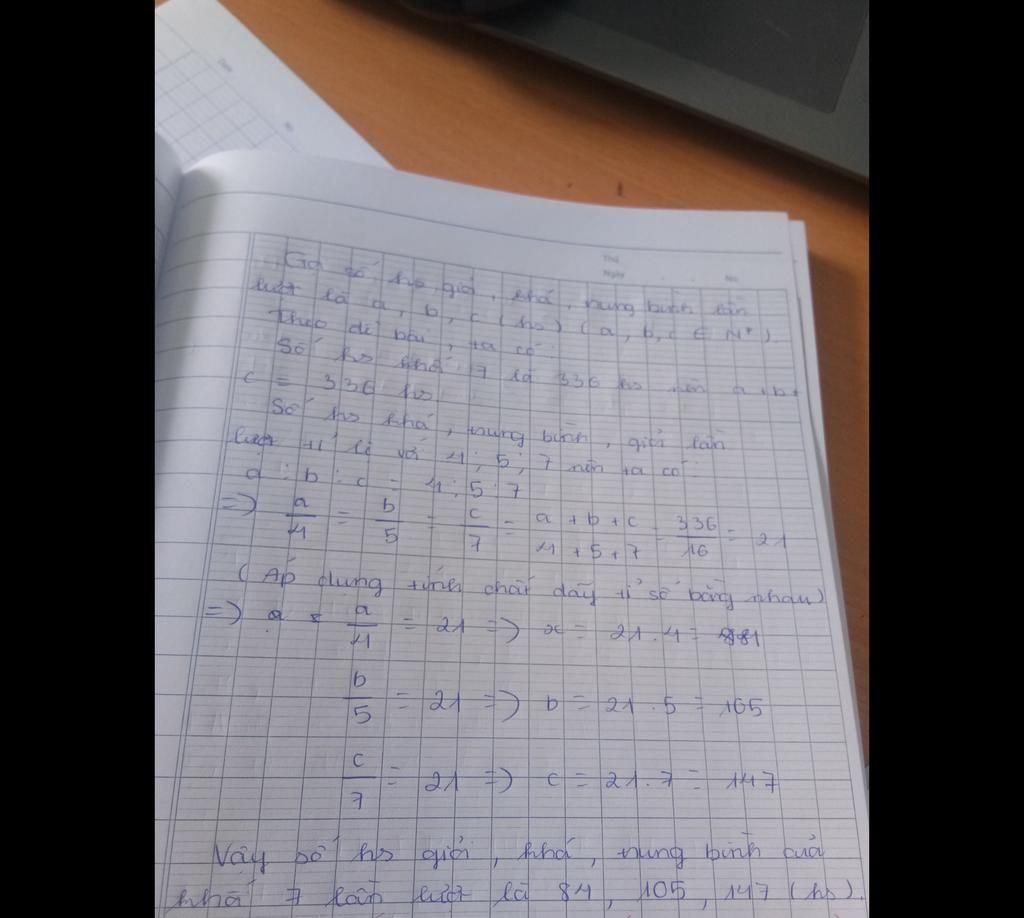 Thứ
Ngày No
Gọi số hs giỏi, khá, trung bình lần
lượt là a, b, c (hs) (a, b, c ∈ N*).
Theo đề bài, ta có:
Số hs khối 7 là 336 hs nên a+b+
c = 336 hs
Số hs khá, trung bình, giỏi lần
lượt tỉ lệ với 4; 5; 7 nên ta có:
a : b : c = 4 : 5 : 7
=> a/4 = b/5 = c/7 = a+b+c/4+5+7 = 336/16 = 21
(Áp dụng tính chất dãy tỉ số bằng nhau)
=> a/4 = 21 => x = 21.4 = 84
b/5 = 21 => b = 21.5 = 105
c/7 = 21 => c = 21.7 = 147
Vậy số hs giỏi, khá, trung bình của
khối 7 lần lượt là 84, 105, 147 (hs).